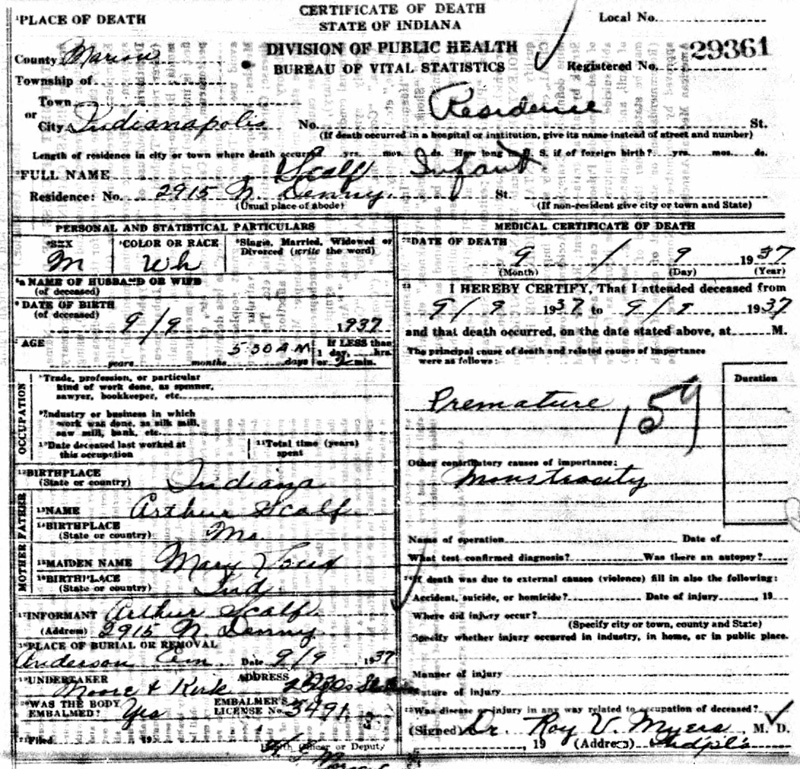 CERTIFICATE OF DEATH
STATE OF INDIANA
DIVISION OF PUBLIC HEALTH
BUREAU OF VITAL STATISTICS
Local No.
Registered No. 29361
PLACE OF DEATH
County Marion
Township of
Town
or
City Indianapolis No. Residence St.
(If death occurred in a hospital or institution, give its name instead of street and number)
Length of residence in city or town where death occurred yrs. mos. ds. How long U. S. if of foreign birth? yrs. mos. ds.
FULL NAME Scalf Infant
Residence: No. 2915 N. Denny St
(Usual place of abode) (If non-resident give city or town and State)
PERSONAL AND STATISTICAL PARTICULARS
SEX M
COLOR OR RACE Wh
Single, Married, Widowed or Divorced (write the word)
NAME OF HUSBAND OR WIFE
(of deceased)
DATE OF BIRTH
(of deceased) 9/9 1937
AGE 5:30 AM If LESS than
years months days 1 day, hrs.
or min.
OCCUPATION
Trade, profession, or particular
kind of work done, as spinner,
sawyer, bookkeeper, etc.
Industry or business in which
work was done, as silk mill,
saw mill, bank, etc.
Date deceased last worked at
this occupation
Total time (years)
spent
BIRTHPLACE
(State or country) Indiana
FATHER
NAME Arthur Scalf
BIRTHPLACE
(State or country) Mo
MOTHER
MAIDEN NAME Mary
BIRTHPLACE
(State or country) Ind
INFORMANT Arthur Scalf
(Address) 2915 N. Denny
PLACE OF BURIAL OR REMOVAL
Anderson Cem Date 9/9 1937
UNDERTAKER Moore & Kirk ADDRESS
WAS THE BODY
EMBALMED? Yes EMBALMER'S
LICENSE No. 3491
Filed 19
Health Officer or Deputy
MEDICAL CERTIFICATE OF DEATH
DATE OF DEATH 9 / 9 1937
(Month) (Day) (Year)
I HEREBY CERTIFY, That I attended deceased from
9/9 1937 to 9/9 1937
and that death occurred, on the date stated above, at M.
The principal cause of death and related causes of importance
were as follows:
Duration
Premature 159
Other contributory causes of importance:
Monstrosity
Name of operation Date of
What test confirmed diagnosis? Was there an autopsy?
If death was due to external causes (violence) fill in also the following:
Accident, suicide, or homicide? Date of injury , 19
Where did injury occur?
(Specify city or town, county and State)
Specify whether injury occurred in industry, in home, or in public place.
Manner of injury
Nature of injury
Was disease or injury in any way related to occupation of deceased?
(Signed) Dr. Roy V. Myers M. D.
, 19 (Address) Indpls